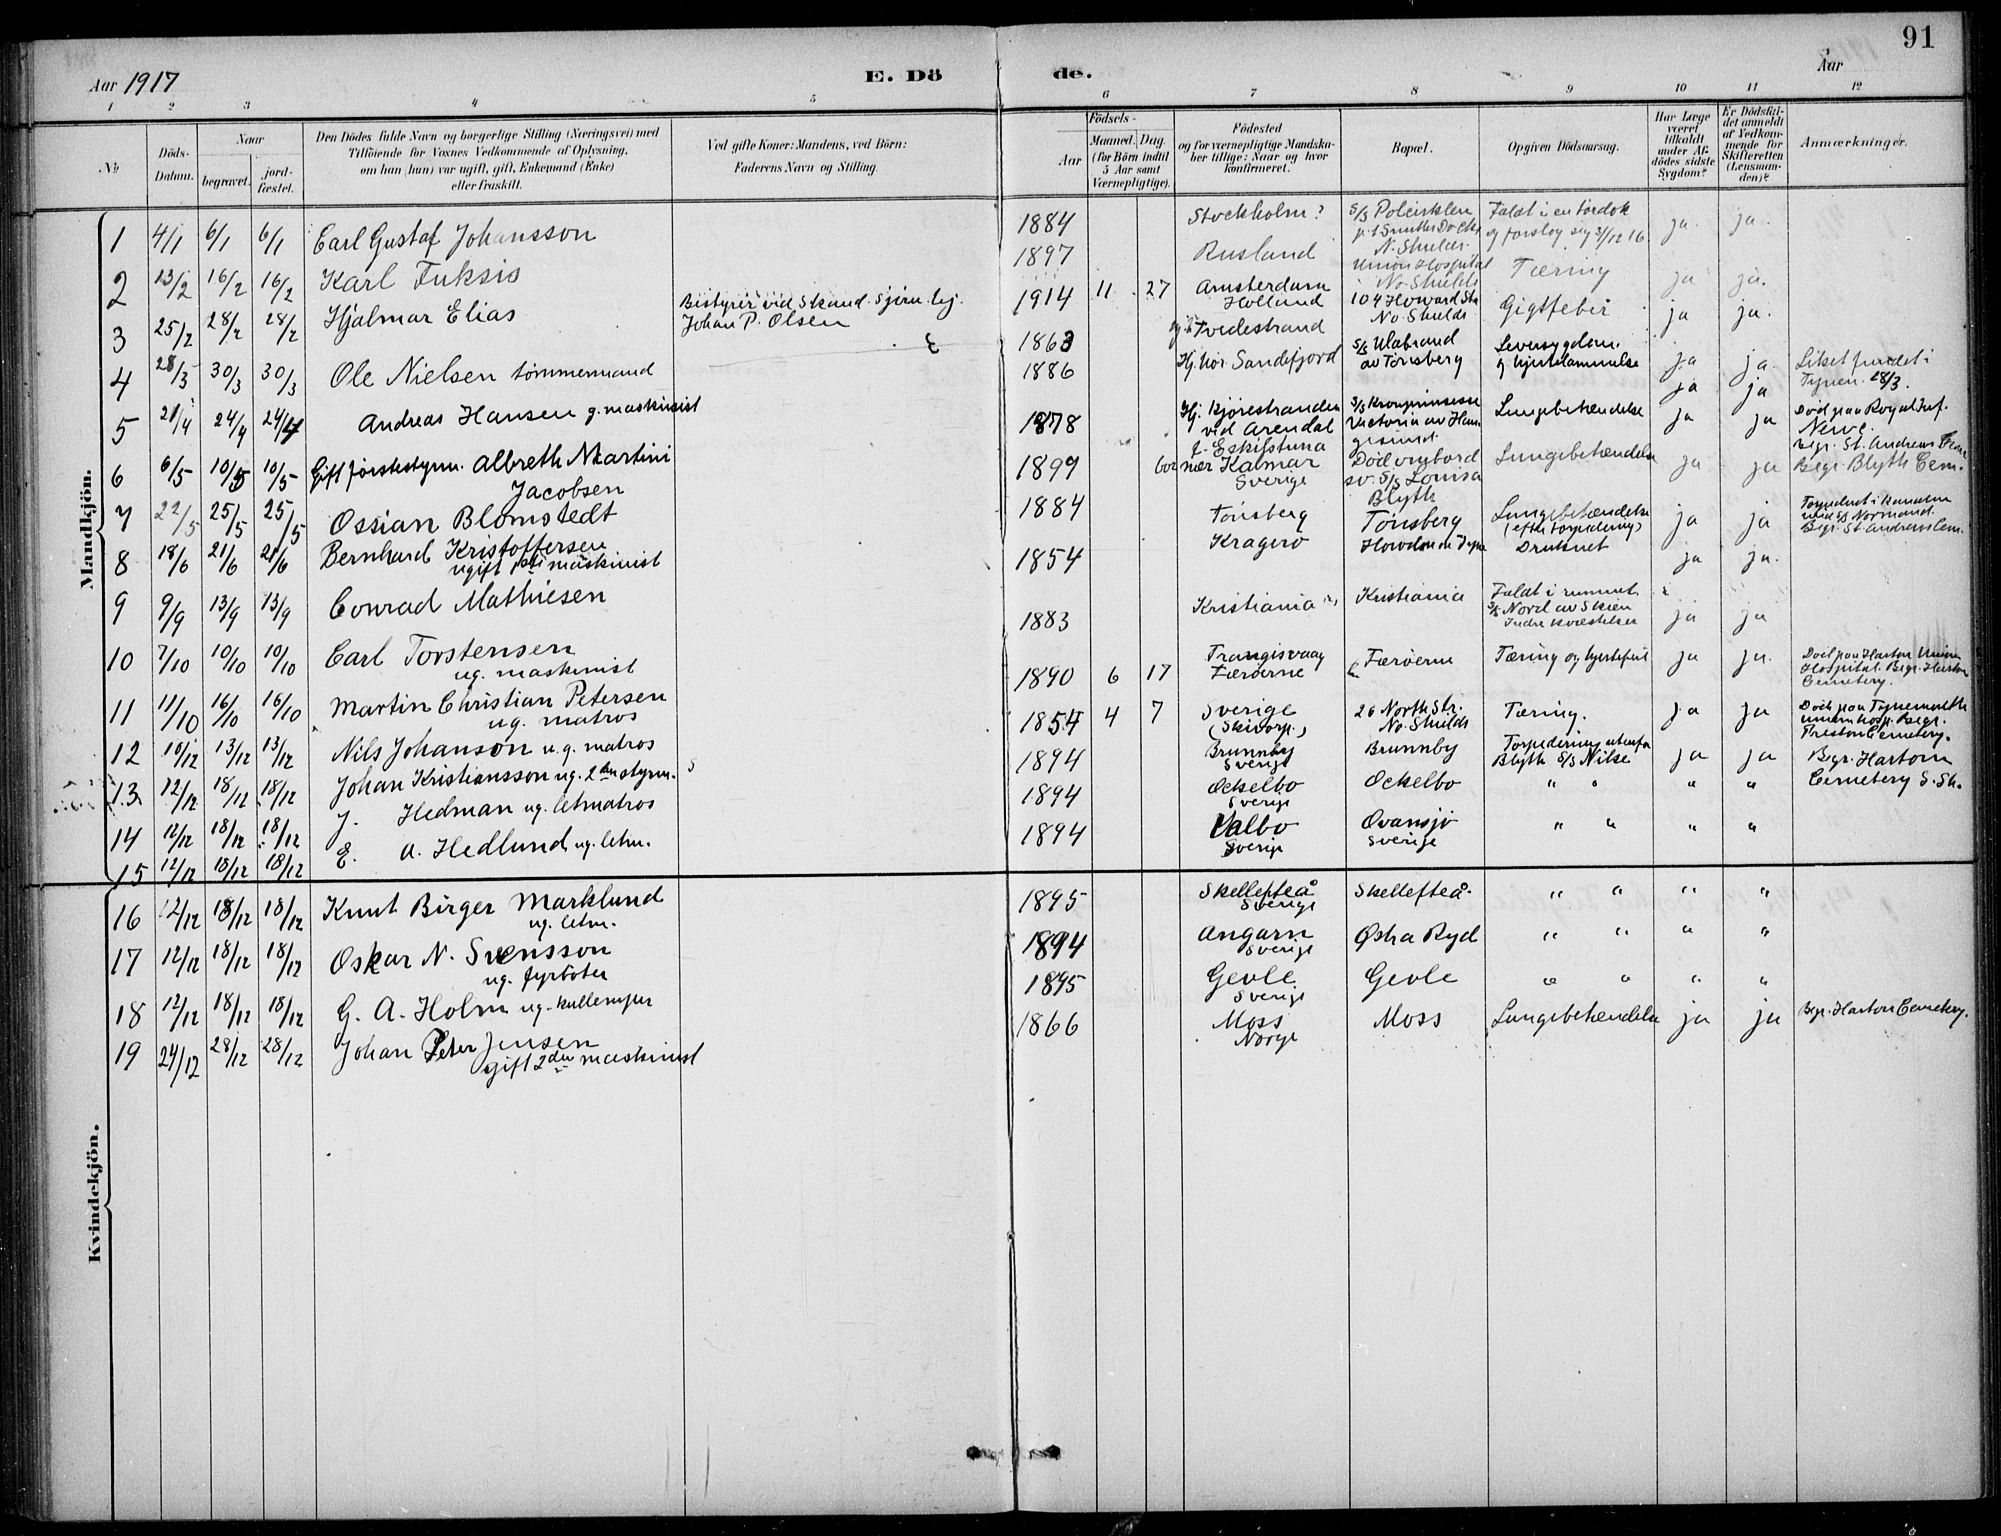 91
Aar 1917
E. Dö
de.
Aar
1 2 3 4 5 6 7 8 9 10 11 12
No.
Döds-
Datum.
Naar
begravet.
jord-
fæstet.
Den Dödes fulde Navn og borgerlige Stilling (Næringsvei) med
Tilföiende for Voxnes Vedkommende af Oplysning,
om han (hun) var ugift, gift, Enkemand (Enke)
eller fraskilt.
Ved gifte Koner: Mandens, ved Börn:
Faderens Navn og Stilling.
Födsels-
Aar
Maaned.
Dag.
(for Börn indtil
5 Aar samt
Værnepligtige).
Födested
og for værnepligtige Mandska-
ber tillige: Naar og hvor
konfirmeret.
Bopæl.
Opgiven Dödsaarsag.
Har Læge
været
tilkaldt
under Af-
dödes sidste
Sygdom?
Er Dödsfal-
det anmeldt
af Vedkom-
mende for
Skifteretten
(Lensman-
den)?
Anmærkninger.
Mandkjön.
1 4/1 6/1 6/1 Carl Gustaf Johansson
2 13/2 16/2 16/2 Karl Fuksis
3 25/2 28/2 28/2 Hjalmar Elias
Bestyrer ved Skand. Sjöm. hj.
Johan P. Olsen
4 28/3 30/3 30/3 Ole Nielsen tömmermand
5 21/4 24/4 24/4 Andreas Hansen g. maskinist
6 6/5 10/5 10/5 Gift förstestyrm. Albreth Martini
Jacobsen
7 22/5 25/5 25/5 Ossian Blomstedt
8 18/6 21/6 21/6 Bernhard Kristoffersen
ugift 1ste maskinist
9 9/9 13/9 13/9 Conrad Mathiesen
10 7/10 10/10 10/10 Carl Torstensen
ug. maskinist
11 11/10 16/10 16/10 Martin Christian Petersen
ug. matros
12 10/12 13/12 13/12 Nils Johanson u.g. matros
13 12/12 18/12 18/12 Johan Kristiansson ug. 2den styrm.
14 12/12 18/12 18/12 J. Hedman ug. letmatros
15 12/12 18/12 18/12 E. A. Hedlund ug. letm.
16 12/12 18/12 18/12 Knut Birger Marklund
ug. letm.
17 12/12 18/12 18/12 Oskar N. Svensson
ug. fyrböter
18 12/12 18/12 18/12 G. A. Holm ug. kullemper
19 24/12 28/12 28/12 Johan Peter Jensen
gift 2den maskinist
Kvindekjön.
1884 Stockholm? S/S
Smiths Docks
N. Shields
Faldt i en tördok
og forslog sig 31/12 16 ja. ja.
1897 Rusland Union Hospital
No. Shields Tæring ja ja.
1914 11 27 Amsterdam
Holland 104 Howard Str
No. Shields Gigtfeber ja ja.
1863 Tvedestrand S/S Ulabrand
av Tönsberg Leversygdom
og hjertelammelse ja ja.
1886 Hj. hör. Sandefjord ja ja
Liket fundet i
Tynen. 28/3.
1878 Hj. Bjorestranden
ved Arendal S/S Kronprinsesse
Victoria av Hau
gesund. Lungebetændelse ja ja
Död paa Royal Inf.
Newc.
Begr. St. Andrews Cem
1899 f. Eskilstuna
bor nær Kalmar
Sverige Död ombord
sv. S/S Louisa
Blyth Lungebetændelse ja ja Begr. Blyth Cem.
1884 Tönsberg Tönsberg Lungebetændelse
(efter torpedering) ja ja
Torpedert i kanalen
med S/S Normand.
Begr. St. Andrews Cem.
1854 Kragerö Howdon on Tyne Druknet ja ja.
1883 Kristiania Kristiania Faldt i rummet
S/S Nord av Skien
Indre kvæstelser ja ja
1890 6 17 Trangisvaag
Færöerne Færöerne Tæring og hjertefeil ja ja.
Död paa Harton Union
Hospital. Begr. Harton
Cemetery.
1854 4 7 Sverige
(Skivarp.) 26 North Str.
No. Shields Tæring. ja ja
Död paa Tynemouth
Union hosp. Begr.
Preston Cemetery.
1894 Brunnby
Sverige Brunnby Torpedering utenfor
Blyth S/S Nilse ja ja
Begr. Harton
Cemetery S. Sh.
1894 Ockelbo
Sverige Ockelbo " " " "
1894 Valbo
Sverige Ovansjö
Sverige " " " "
1895 Skellefteå
Sverige Skellefteå. " " " "
1894 Angarn
Sverige Östra Ryd " " " "
1895 Gevle
Sverige Gevle " " " "
1866 Moss
Norge Moss Lungebetændelse ja ja Begr. Harton Cemetery.